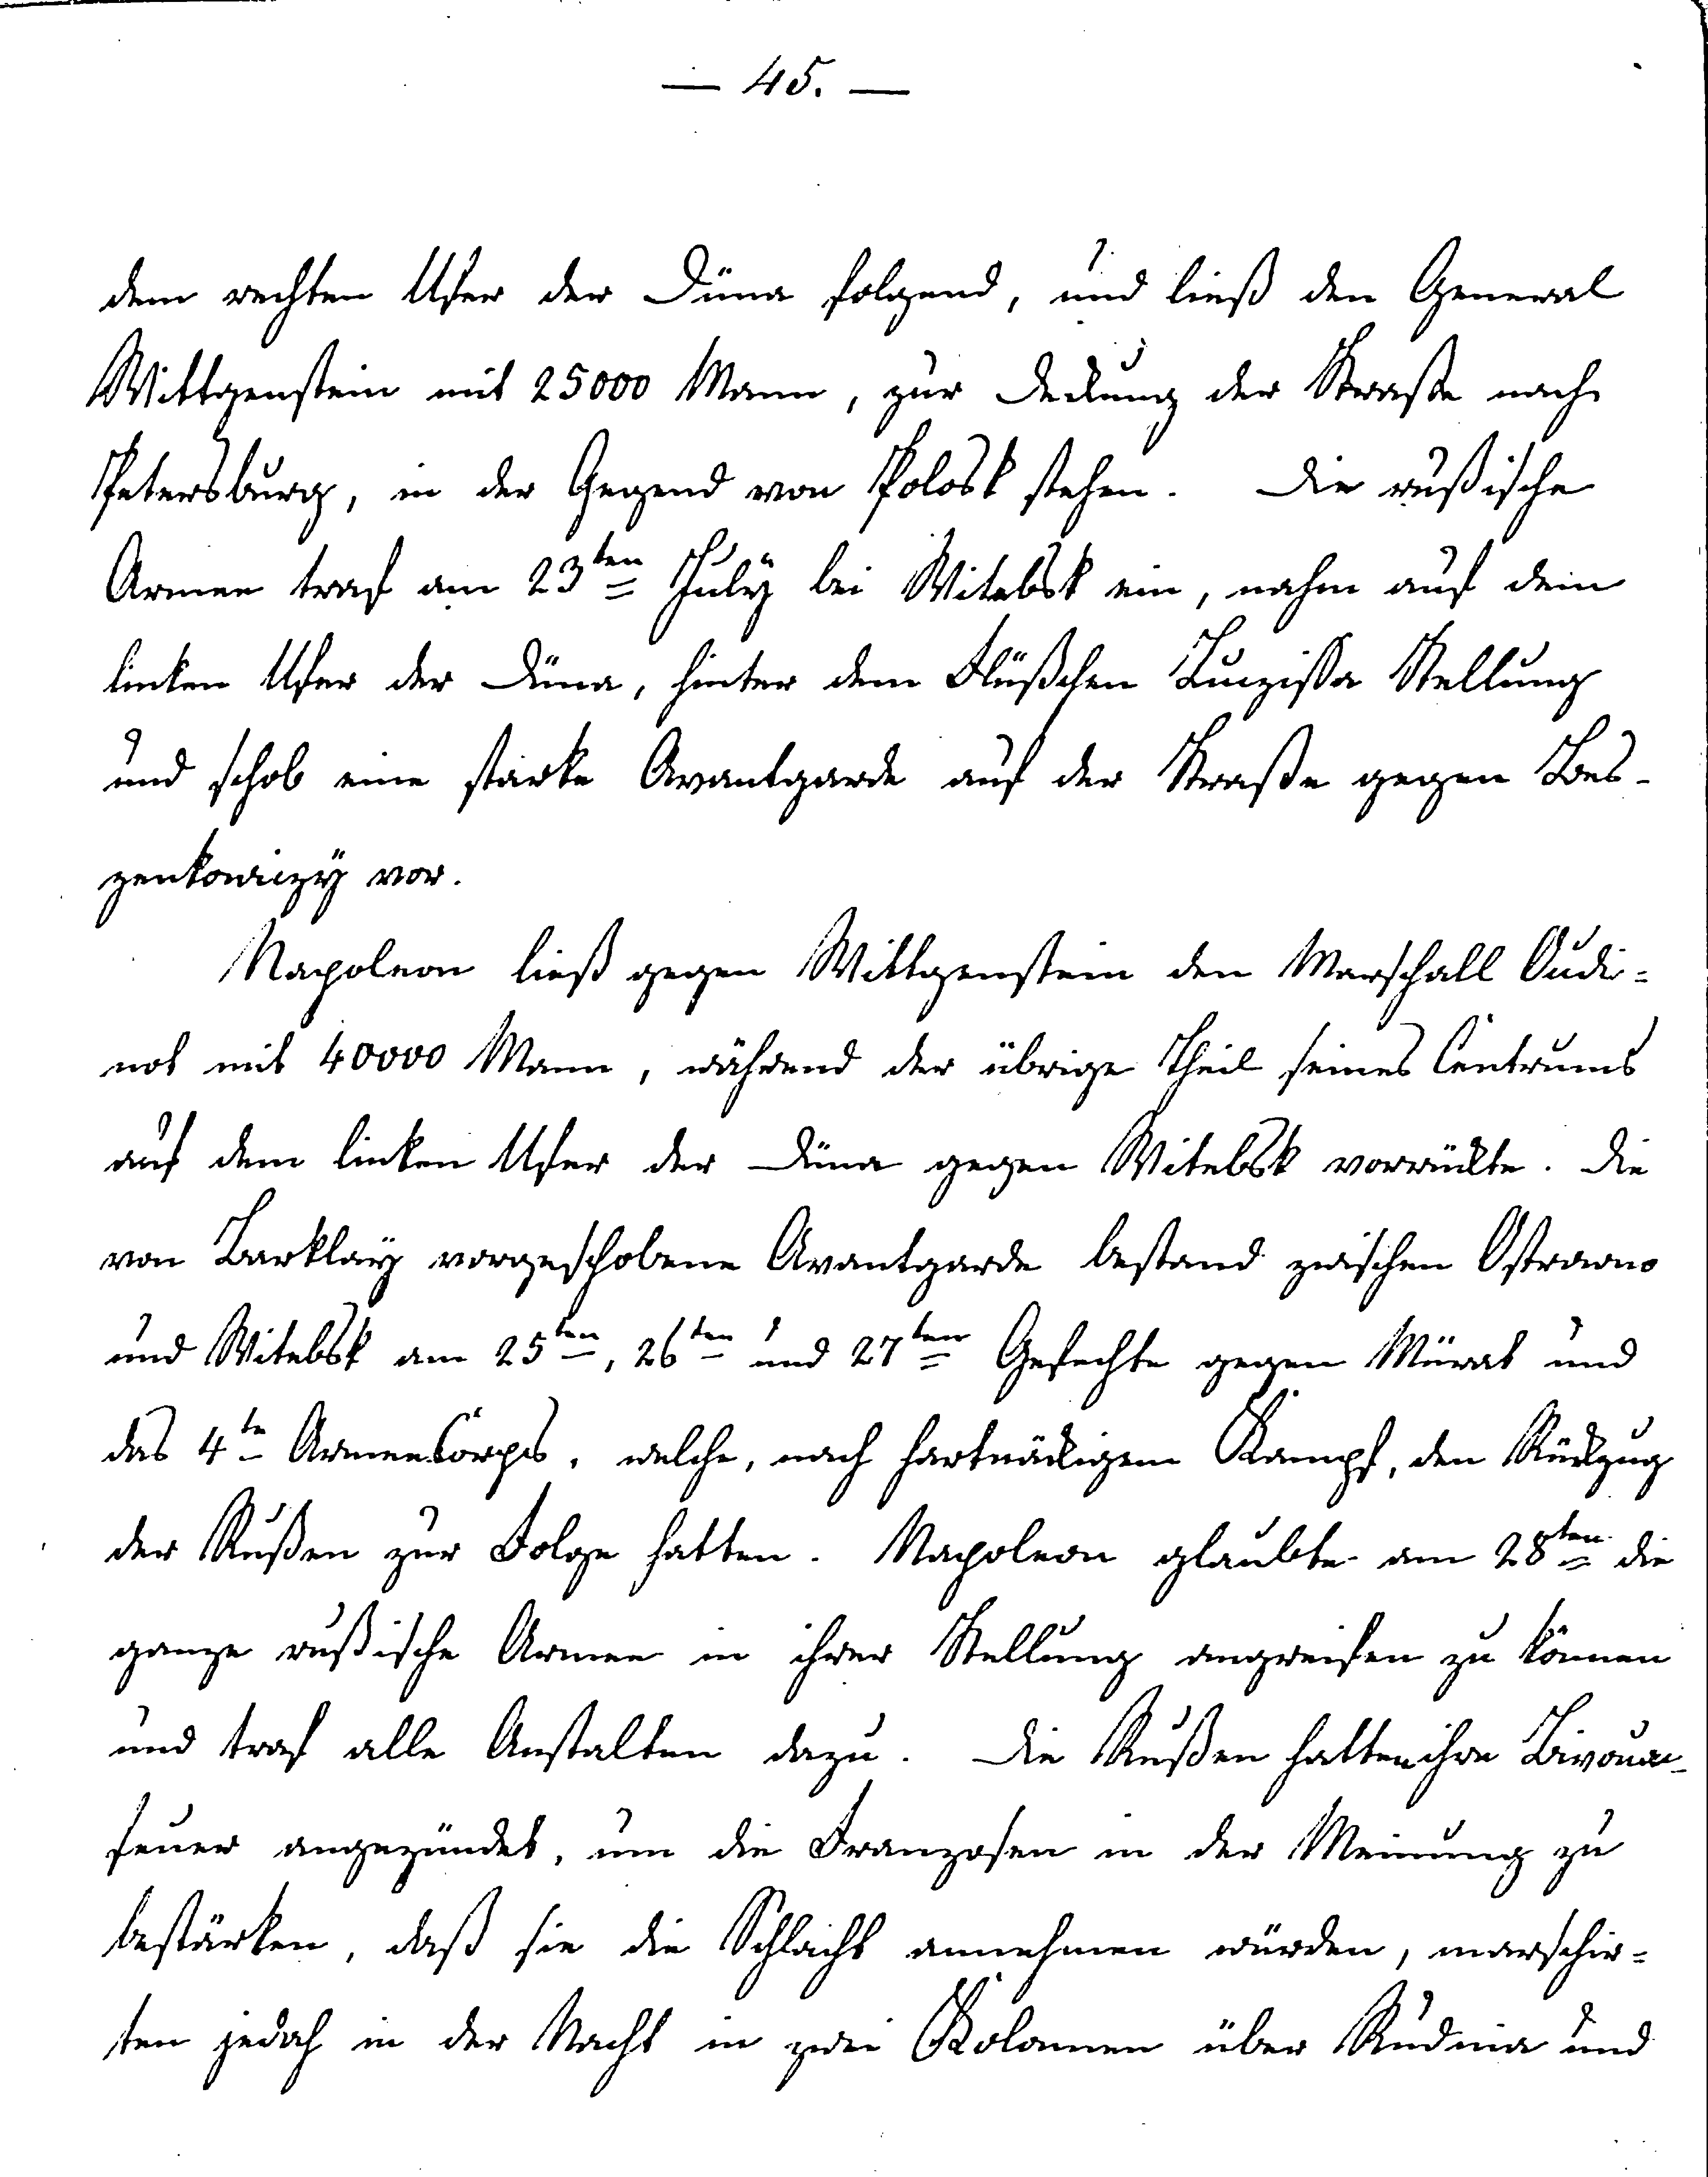 — 45. —
dem rechten Ufer der Düna folgend, und ließ den General
Wittgenstein mit 25000 Mann, zur Deckung der Straße nach
Petersburg, in der Gegend von Polosk stehen. Die rußische
Armee traf am 23ten July bei Witebsk ein, nahm auf dem
linken Ufer der Düna, hinter dem Flüßchen Luczissa Stellung
und schob eine starke Avantgarde auf der Straße gegen Bes-
zenkowiczy vor.
Napoleon ließ gegen Wittgenstein den Marschall Oudi-
not mit 40000 Mann, während der übrige Theil seines Centrums
auf dem linken Ufer der Düna gegen Witebsk vorrückte. Die
von Barklay vorgeschobene Avantgarde bestand zwischen Ostrowno
und Witebsk am 25ten, 26ten und 27ten Gefechte gegen Mürat und
das 4te ArmeeCorps, welche, nach hartnäckigem Kampf, den Rückzug
der Rußen zur Folge hatten. Napoleon glaubte am 28ten die
ganze rußische Armee in ihrer Stellung angreifen zu können
und traf alle Anstalten dazu. Die Rußen hatten ihre Bivouac-
feuer angezündet, um die Franzosen in der Meinung zu
bestärken, daß sie die Schlacht annehmen würden, marschir-
ten jedoch in der Nacht in zwei Kolonnen über Rudnia und